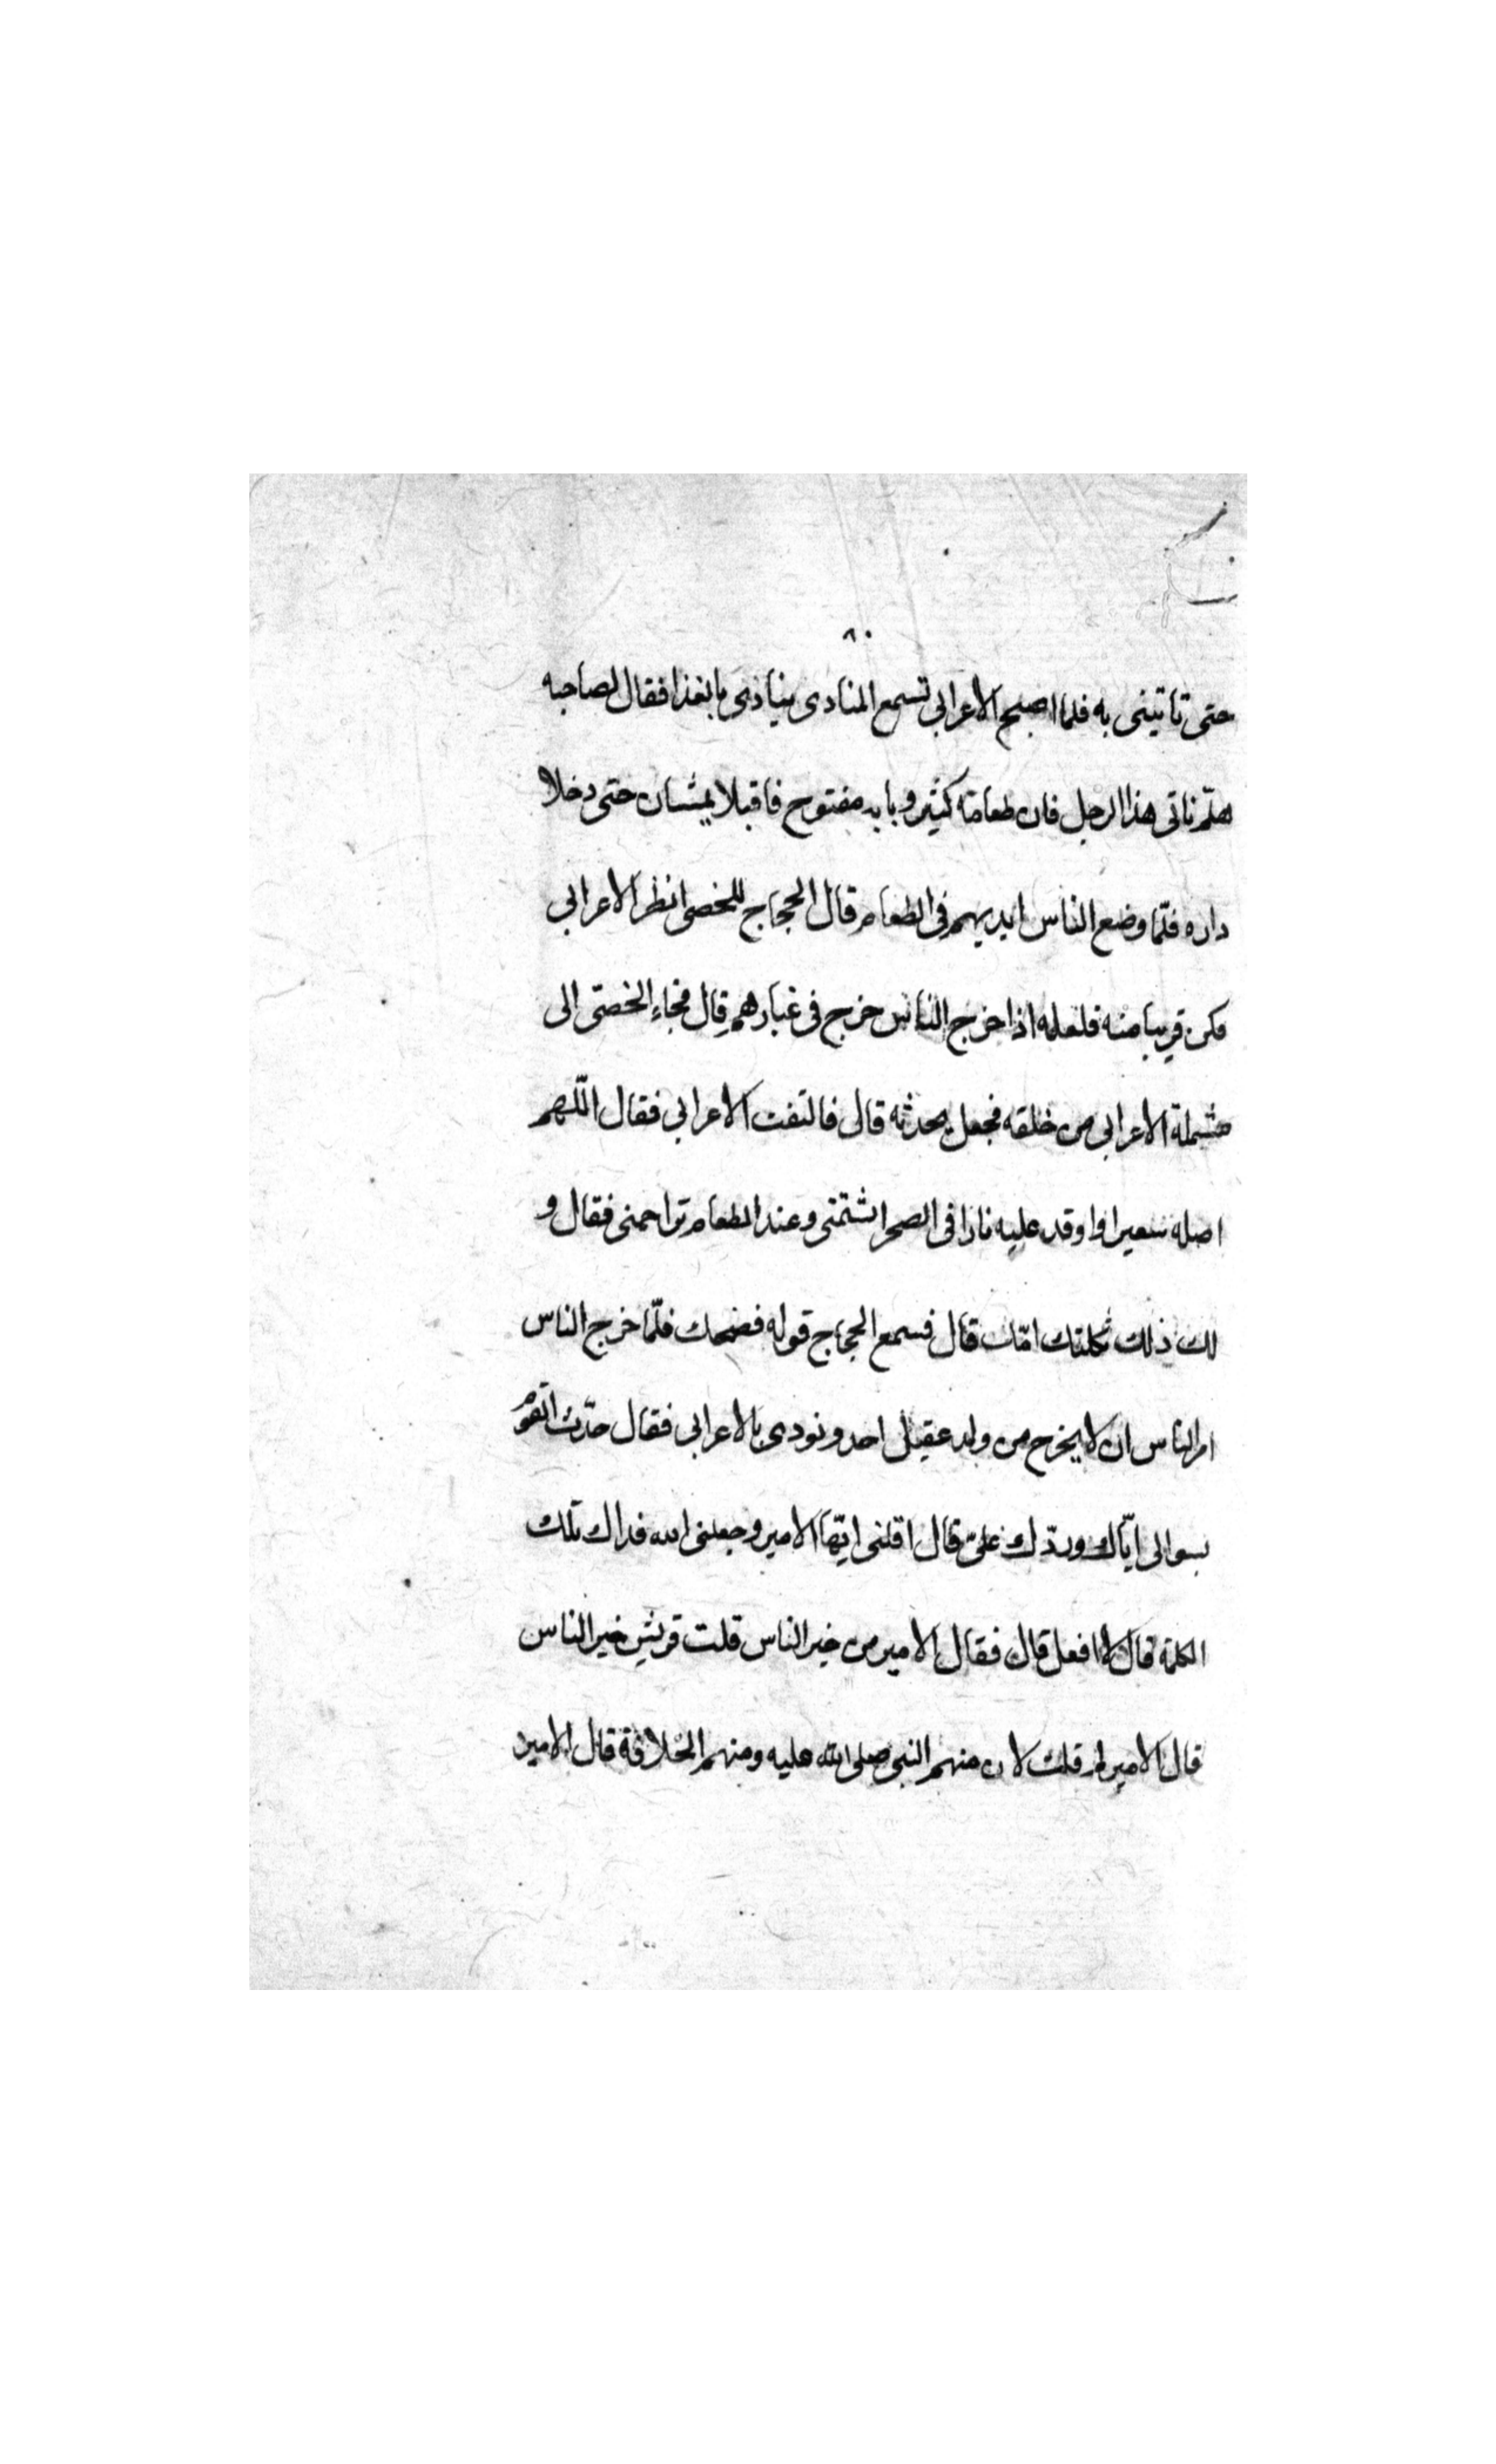 ٨٠
حتى تاتينى به فلما اصبح الاعرابى تسمع المنادى ينادى بالغذا فقال لصاحبه
هلم ناتى هذا الرجل فان طعامه كثير وبابه مفتوح فاقبلا يمشيان حتى دخلا
داره فلمّا وضع الناس ايديهم فى الطعام قال الحجاج للخصى انظر الاعرابى
فكن قريبا منه فلعله اذا خرج الناس خرج فى غبارهم قال فجاء الخصىّ الى
شملة الاعرابى من خلفه فجعل يحدثه قال فالتفت الاعرابى فقال اللّهم
اصله سعيرا واوقد عليه نارا فى الصحرا شتمنى وعند الطعام تزاحمنى فقال و
لك ذلك ثكلتك امّك قال فسمع الحجاج قوله فضحك فلمّا خرج الناس
امر الناس ان لا يخرج من ولد عقيل احد ونودى بالاعرابى فقال حدّث القوم
بسوالى ايّاك وردّك علىّ قال اقلنى ايّها الامير وجعلنى الله فداك تلك
الكلمة قال لا افعل قال فقال الامير من خير الناس قلت قريش خير الناس
قال الامير لم قلت لان منهم النبى صلى الله عليه ومنهم الخلافة قال الامير